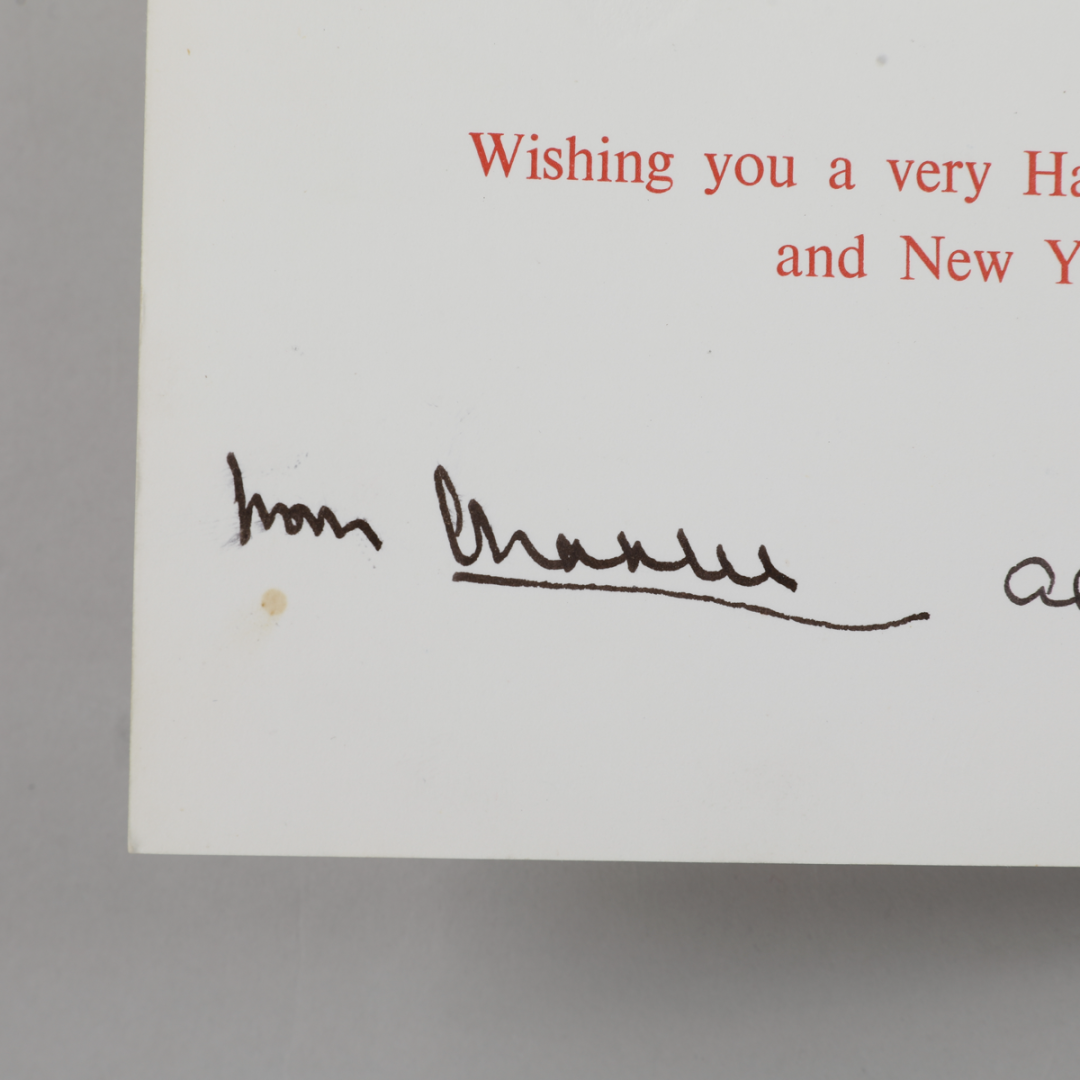 Wishing you a very Ha
and New Y
from Charles a